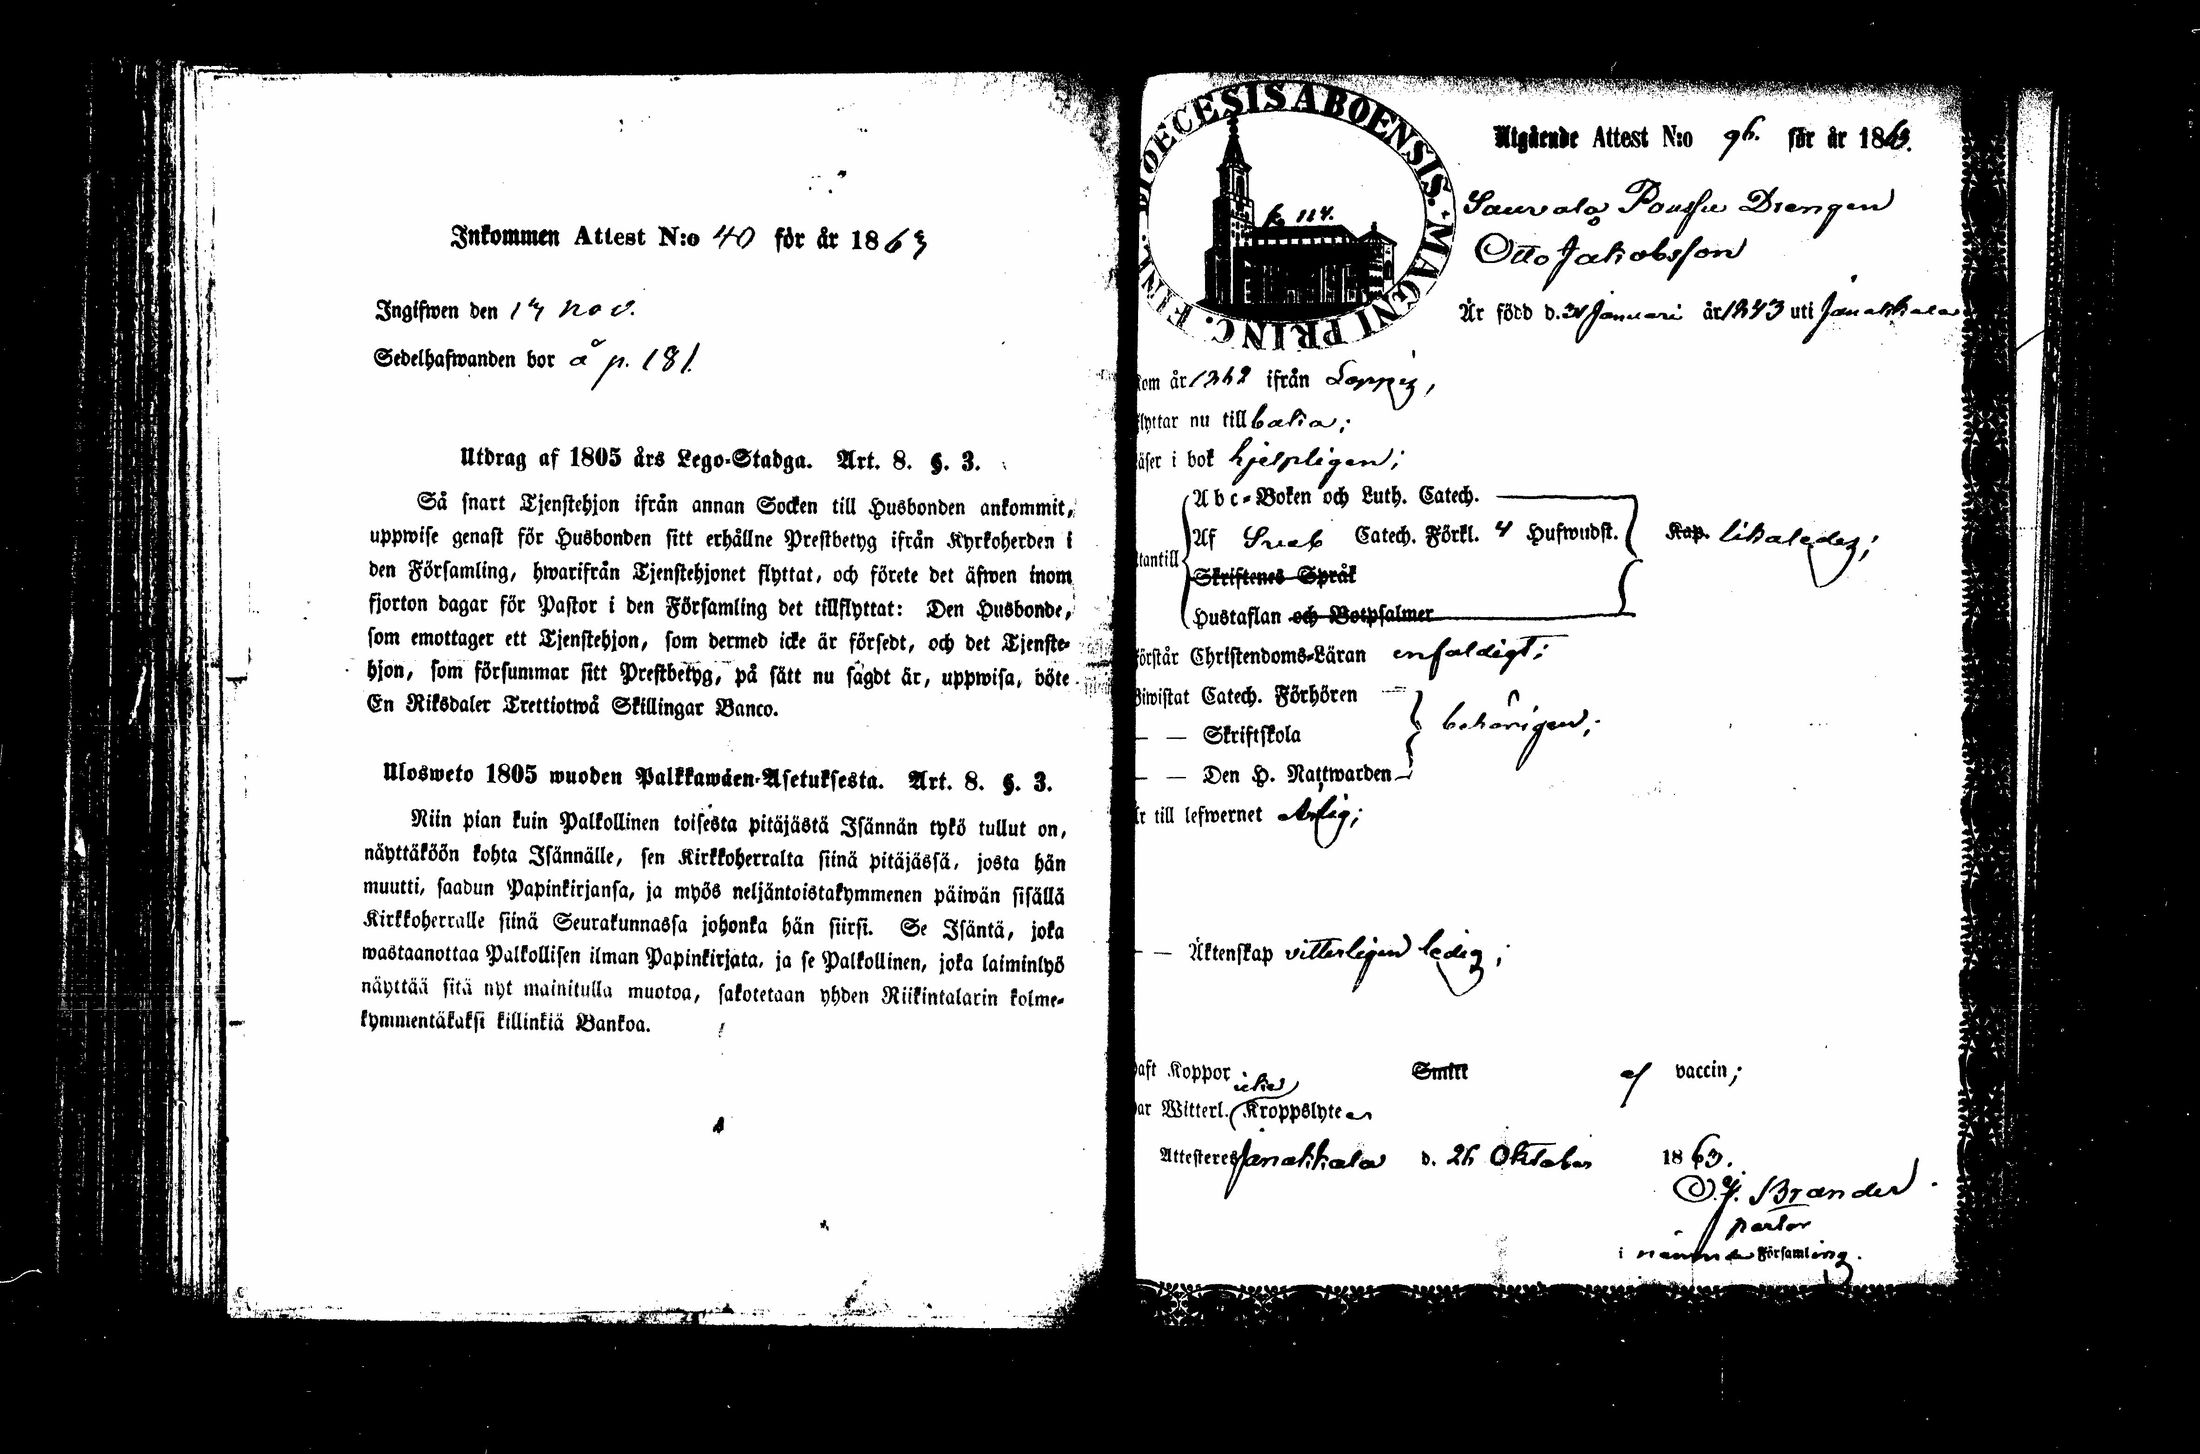 Inkommen Attest N:o 40 för år 1863
Ingifwen den 17 nov.
Sedelhafwanden bor å p. 181.
Utdrag af 1805 års Lego-Stadga. Art. 8. §. 3.
Så snart Tjenstehjon ifrån annan Socken till Husbonden ankommit,
uppwise genast för Husbonden sitt erhållne Prestbetyg ifrån Kyrkoherden i
den Församling, hwarifrån Tjenstehjonet flyttat, och förete det äfwen inom
fjorton dagar för Pastor i den Församling det tillflyttat: Den Husbonde,
som emottager ett Tjenstehjon, som dermed icke är försedt, och det Tjenste-
hjon, som försummar sitt Prestbetyg, på sätt nu sagdt är, uppwisa, böte
En Riksdaler Trettiotwå Skillingar Banco.
Ulosweto 1805 wuoden Palkkawäen-Asetuksesta. Art. 8. §. 3.
Niin pian kuin Palkollinen toisesta pitäjästä Isännän tykö tullut on,
näyttäköön kohta Isännälle, sen Kirkkoherralta siinä pitäjässä, josta hän
muutti, saadun Papinkirjansa, ja myös neljäntoistakymmenen päiwän sisällä
Kirkkoherralle siinä Seurakunnassa johonka hän siirsi. Se Isäntä, joka
wastaanottaa Palkollisen ilman Papinkirjata, ja se Palkollinen, joka laiminlyö
näyttää sitä nyt mainitulla muotoa, sakotetaan yhden Riikintalarin kolme-
kymmentäkaksi killinkiä Bankoa.
DIOECESIS ABOENSIS. MAGNI PRINC. FINL.
114.
Utgående Attest N:o 96. för år 1863.
Saurala Poussu Drengen
Otto Jakobsson
Är född d. Januari år 1843 uti Janakkala
kom år 1862 ifrån Loppis,
flyttar nu till
läser i bok hjelpligen;
Abc-Boken och Luth. Catech.
Af Sveb Catech. Förkl. 4 Hufwudst. Kap. likaledes;
utantill
Skriftenes Språk
Hustaflan och Botpsalmer
förstår Christendoms-Läran enfaldigt;
Biwistat Catech. Förhören
— — Skriftskola behörigen;
— — Den H. Nattwarden
är till lefwernet ärlig;
— — Äktenskap vitterligen ledig;
haft Koppor Smitt af vaccin;
icke
har Witterl. Kroppslyte
Attesteres Janakkala d. 26 Oktober 1863.
O. J. Brander
pastor
i nämnda Församling.